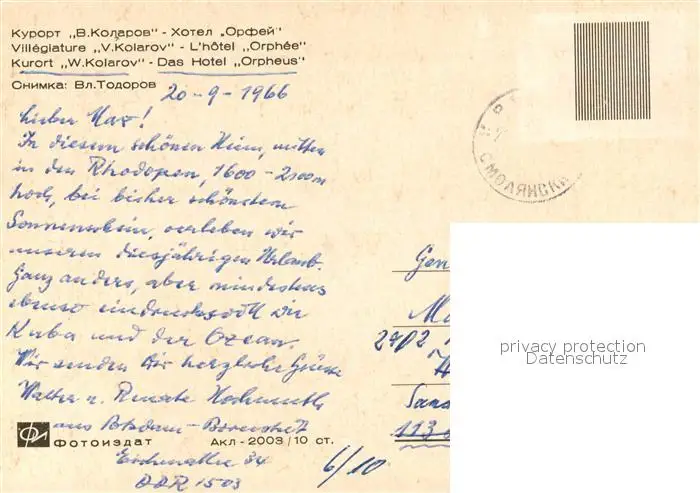 Курорт „В.Коларов" - Хотел „Орфей"
Villégiature „V.Kolarov" - L'hôtel „Orphée"
Kurort „W.Kolarov" - Das Hotel „Orpheus"
Снимка: Вл.Тодоров
20-9-1966
Lieber Max!
In diesem schönen Heim, mitten
in den Rhodopen, 1600-2100m
hoch, bei bisher schönstem
Sonnenschein, verleben wir
unseren diesjährigen Urlaub.
Ganz anders, aber mindestens
ebenso eindrucksvoll wie
Kuba und der Ozean.
Wir senden Dir herzliche Grüsse
Walter u. Renate
aus Potsdam-
Фотоиздат Акл-2003/10 ст.
34
DDR 1503
6/10
СМОЛЯНСКИ
Gen
Ma
2402
H
San
113
privacy protection
Datenschutz